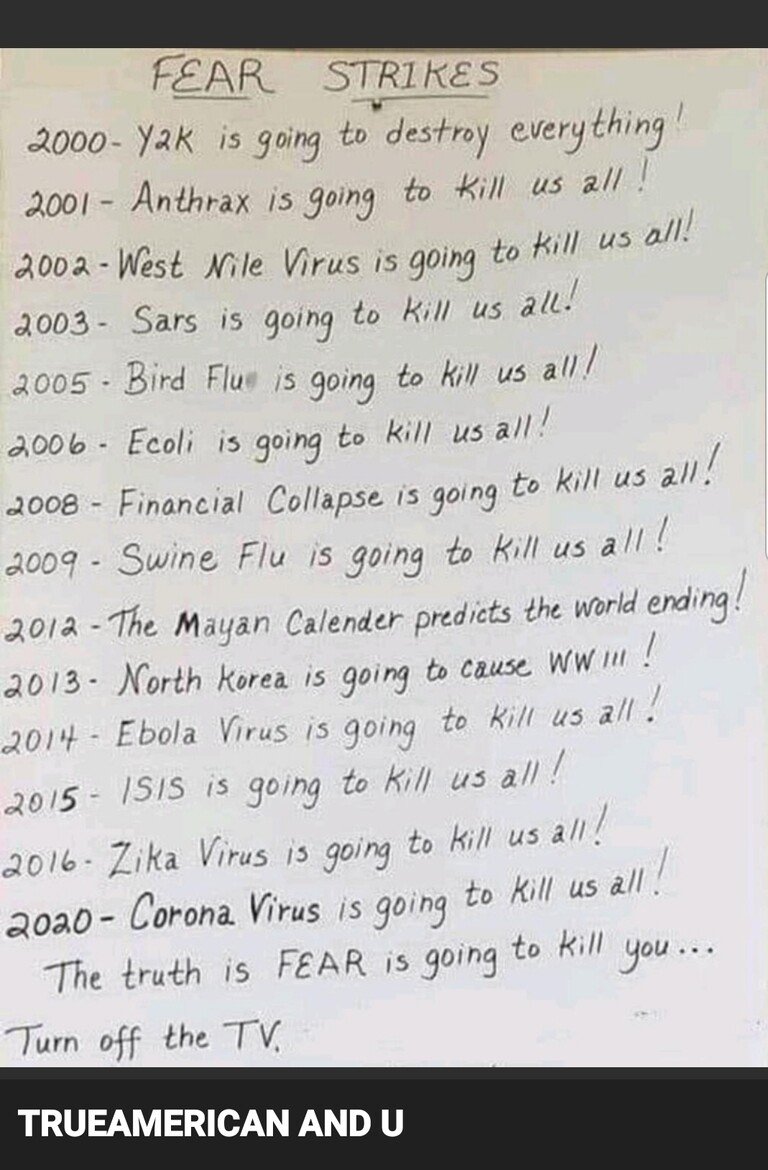 FEAR STRIKES
2000- Y2K is going to destroy everything!
2001 - Anthrax is going to kill us all!
2002 - West Nile Virus is going to kill us all!
2003 - Sars is going to kill us all!
2005 - Bird Flu is going to kill us all!
2006 - Ecoli is going to kill us all!
2008 - Financial Collapse is going to kill us all!
2009 - Swine Flu is going to kill us all!
2012 - The Mayan Calender predicts the world ending!
2013 - North Korea is going to cause WW III!
2014 - Ebola Virus is going to kill us all!
2015 - ISIS is going to kill us all!
2016 - Zika Virus is going to kill us all!
2020 - Corona Virus is going to kill us all!
The truth is FEAR is going to kill you...
Turn off the TV.
TRUEAMERICAN AND U